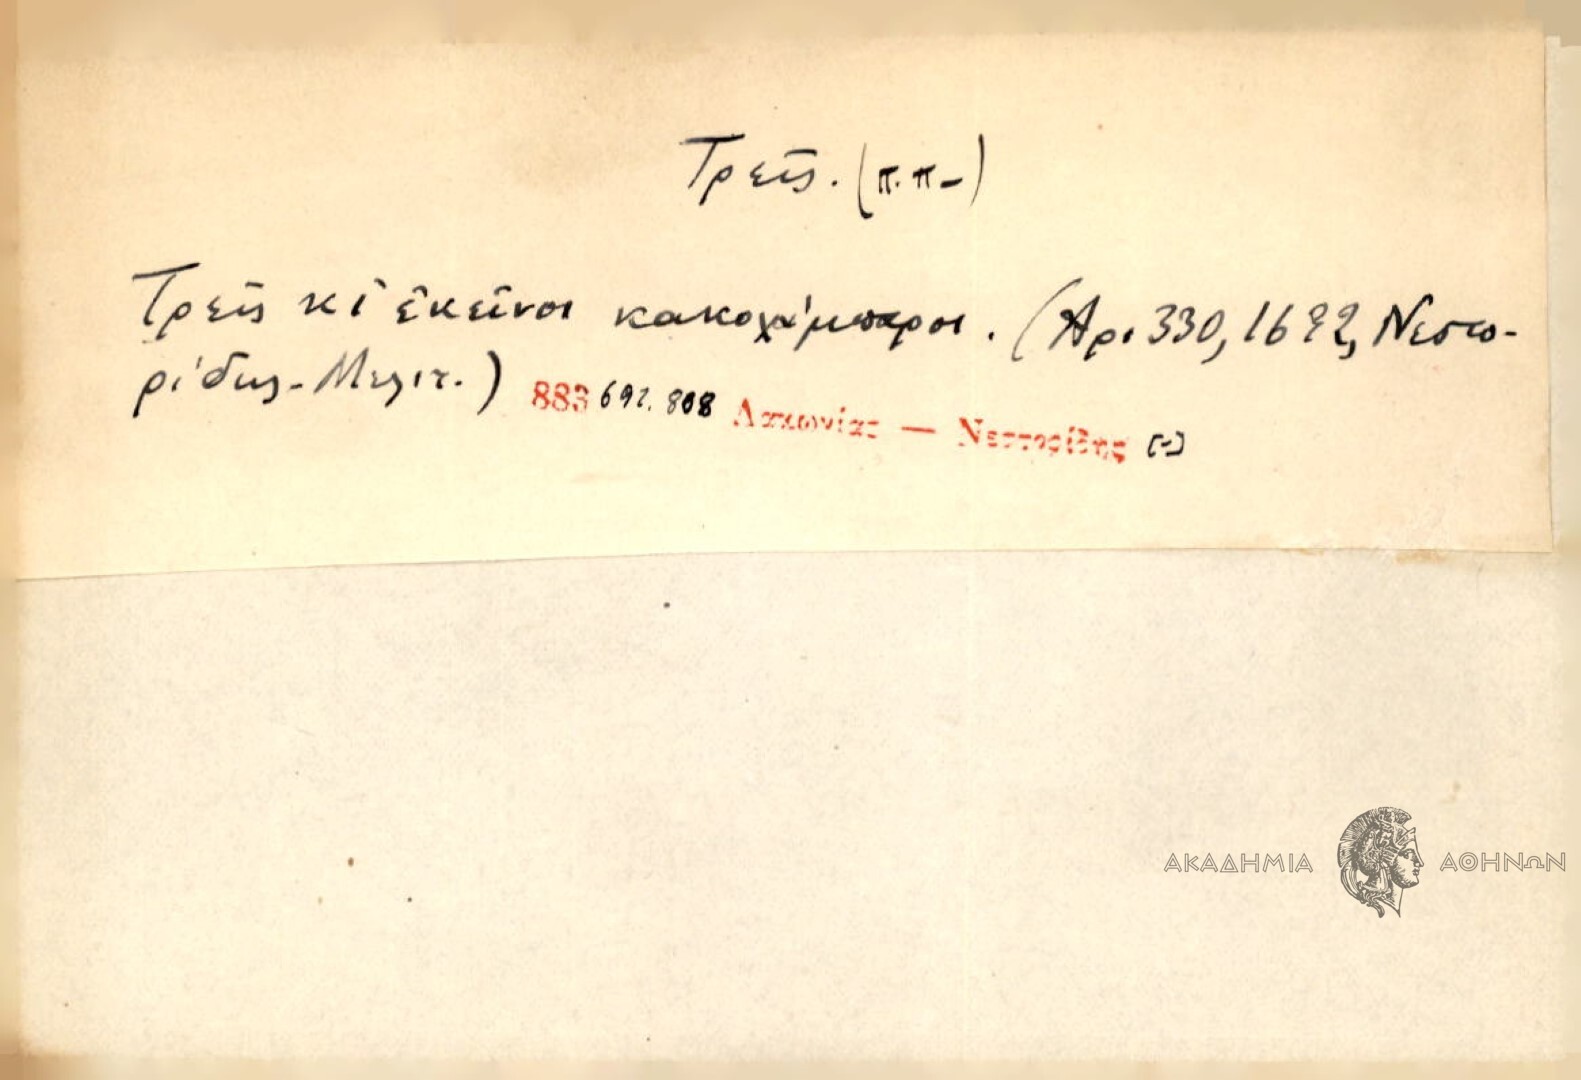 Τρεῖς. (π.π-)
Τρεῖς κι̉ ἐκεῖνοι κακοχάμπαροι. (Αρ. 330, 1692, Νεστο-
ρίδης - Μελιτ.) 883 692. 808 Λακωνίας — Νεστορίδης [-]
ΑΚΑΔΗΜΙΑ ΑΘΗΝΩΝ